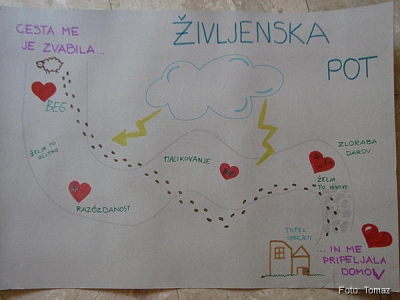 CESTA ME
JE ZVABILA...
ŽIVLJENSKA
POT
BEG
ŽELJA PO
UŽITKU
MALIKOVANJE
ZLORABA
DAROV
ŽELJA
PO
RAZUZDANOST
... IN ME
PRIPELJALA
DOMOV
Foto: Tomaz